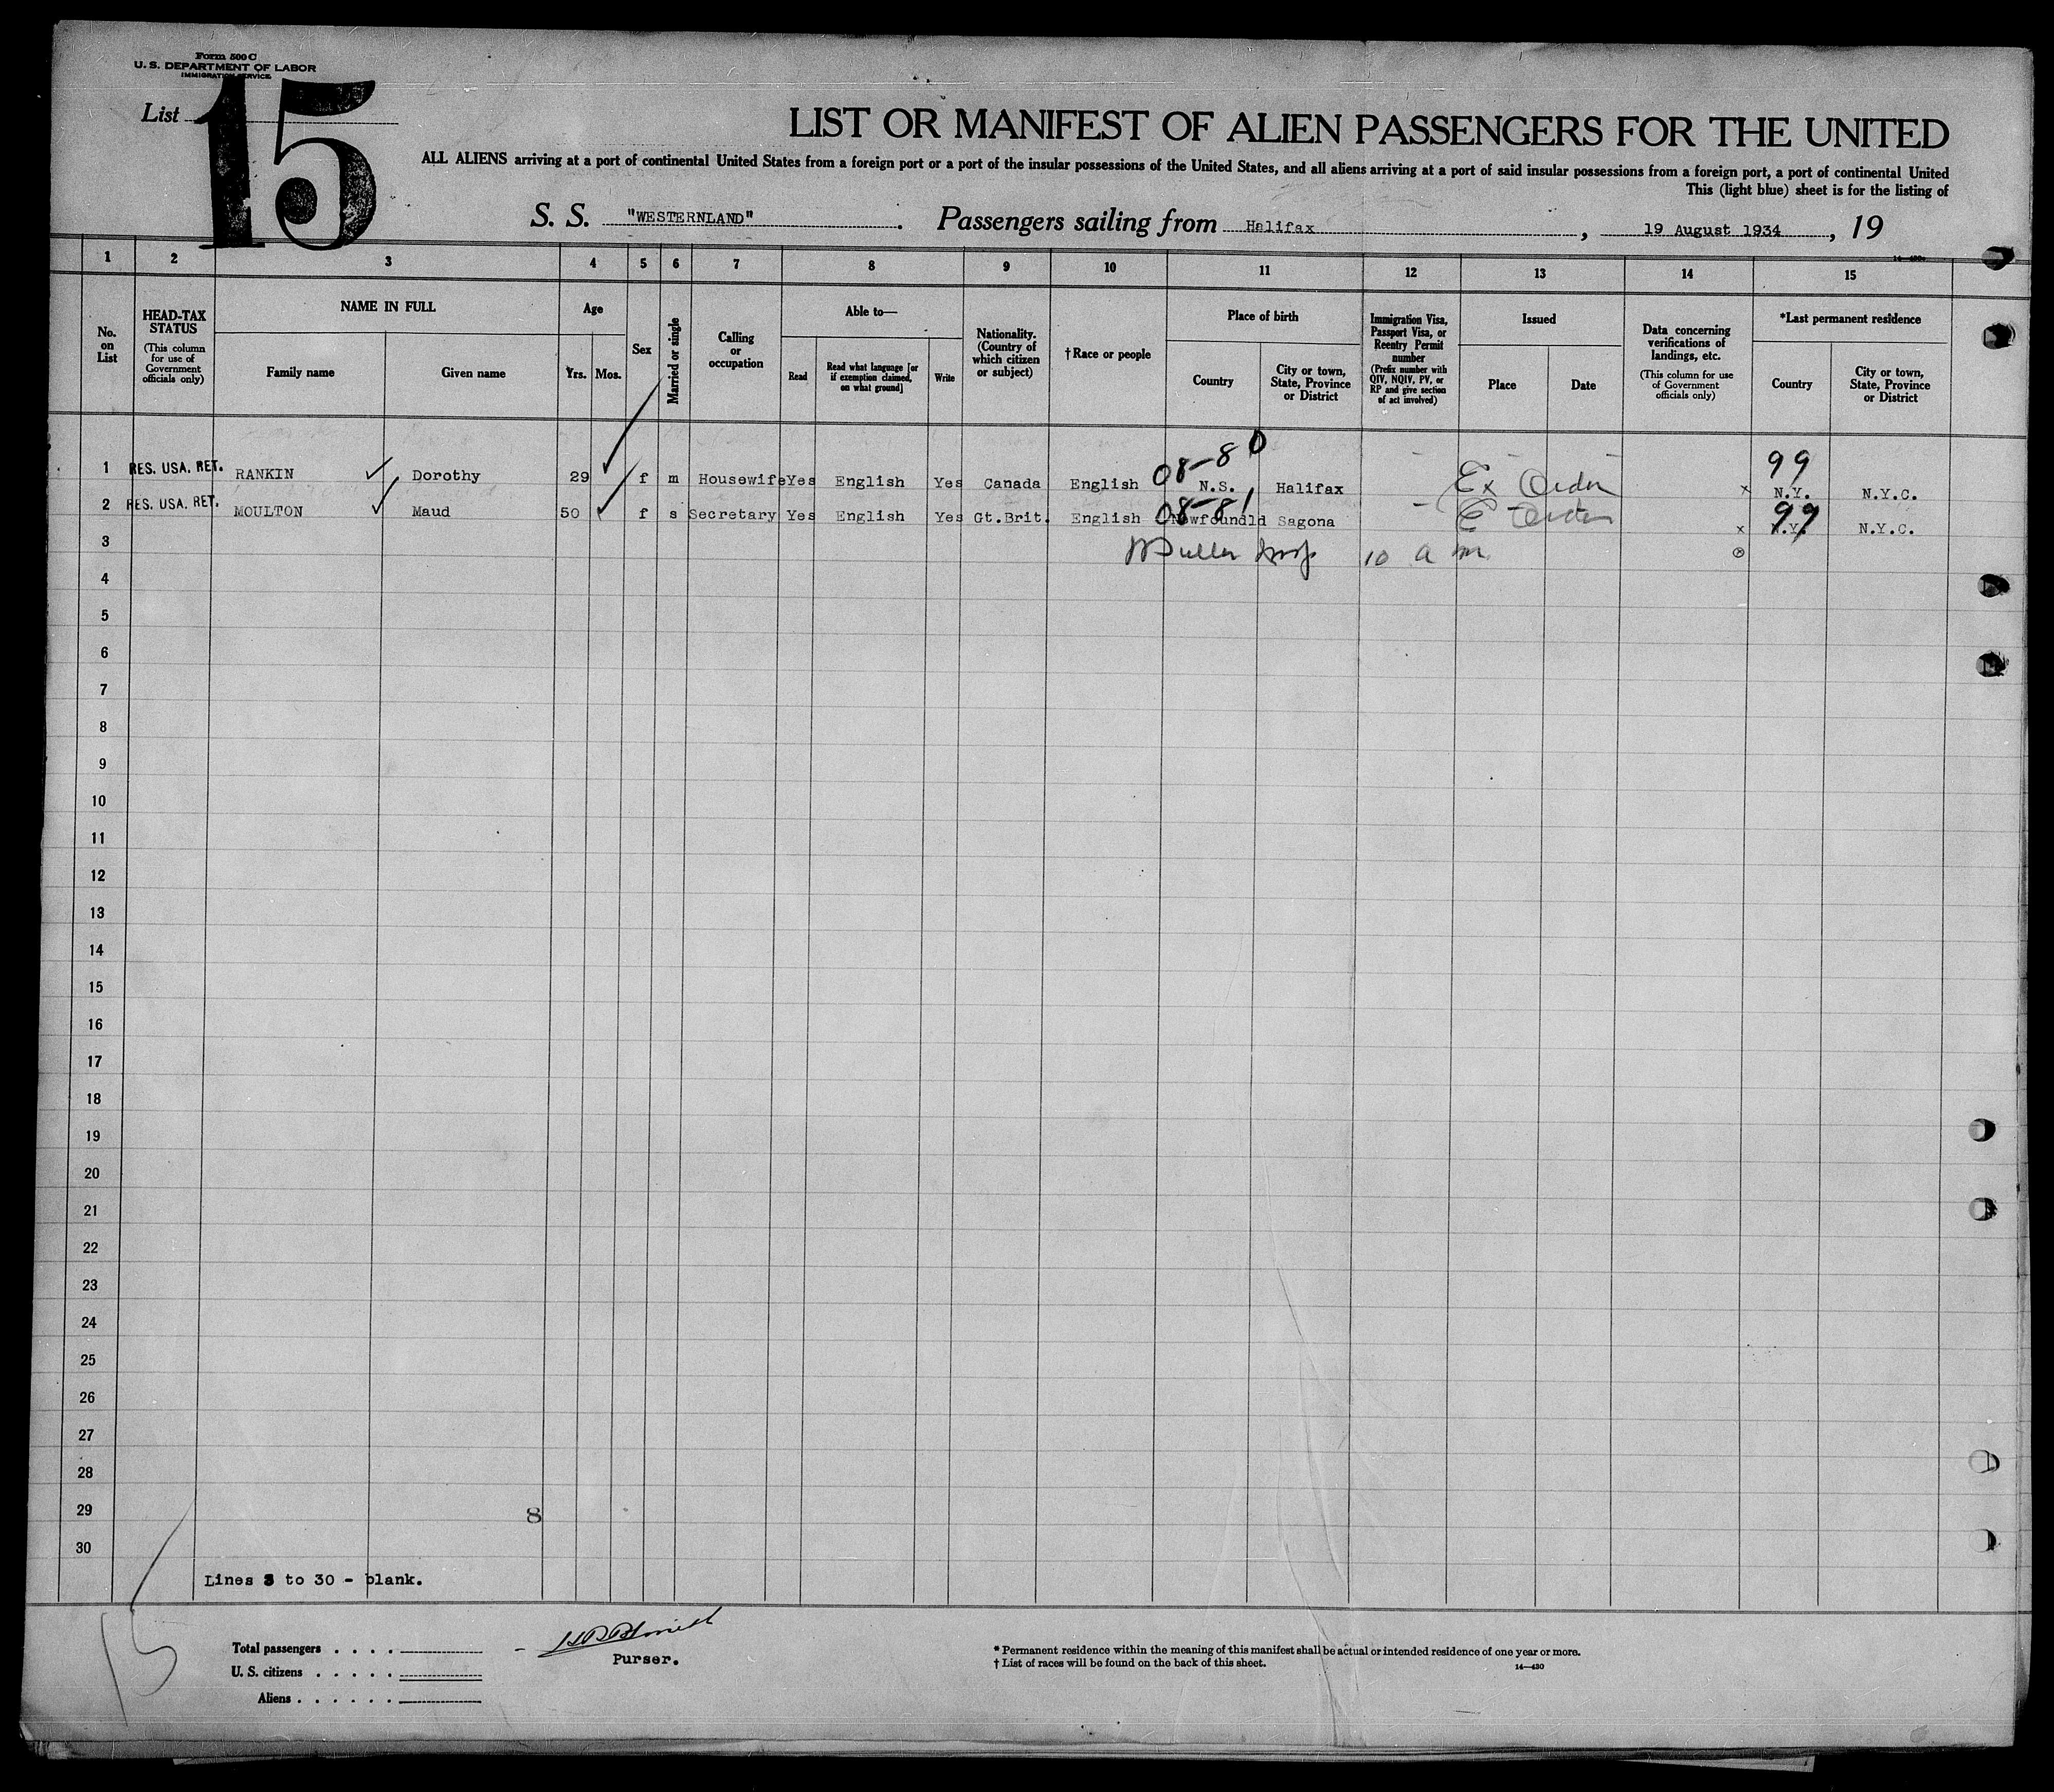 Form 500 C
U. S. DEPARTMENT OF LABOR
IMMIGRATION SERVICE
List 15
LIST OR MANIFEST OF ALIEN PASSENGERS FOR THE UNITED
ALL ALIENS arriving at a port of continental United States from a foreign port or a port of the insular possessions of the United States, and all aliens arriving at a port of said insular possessions from a foreign port, a port of continental United
This (light blue) sheet is for the listing of
S. S. "WESTERNLAND". Passengers sailing from Halifax, 19 August 1934, 19
1 2 3 4 5 6 7 8 9 10 11 12 13 14 15
No. on List
HEAD-TAX STATUS
(This column for use of Government officials only)
NAME IN FULL
Family name
Given name
Age
Yrs. Mos.
Sex
Married or single
Calling or occupation
Able to—
Read
Read what language [or if exemption claimed, on what ground]
Write
Nationality. (Country of which citizen or subject)
†Race or people
Place of birth
Country
City or town, State, Province or District
Immigration Visa, Passport Visa, or Reentry Permit number
(Prefix number with QIV, NQIV, PV, or RP and give section of act involved)
Issued
Place
Date
Data concerning verifications of landings, etc.
(This column for use of Government officials only)
*Last permanent residence
Country
City or town, State, Province or District
08-80 99
1 RES. USA. RET. RANKIN Dorothy 29 f m Housewife Yes English Yes Canada English N.S. Halifax Ex Order x N.Y. N.Y.C.
08-81 99
2 RES. USA. RET. MOULTON Maud 50 f s Secretary Yes English Yes Gt.Brit. English Newfoundld Sagona E Order x N.Y. N.Y.C.
3 10 a m
4
5
6
7
8
9
10
11
12
13
14
15
16
17
18
19
20
21
22
23
24
25
26
27
28
29 8
30
Lines 3 to 30 - blank.
15
Total passengers . . . .
U. S. citizens . . . . .
Aliens . . . . . .
Purser.
* Permanent residence within the meaning of this manifest shall be actual or intended residence of one year or more.
† List of races will be found on the back of this sheet.
14—430